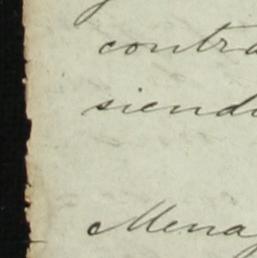 contra
siend
Mena